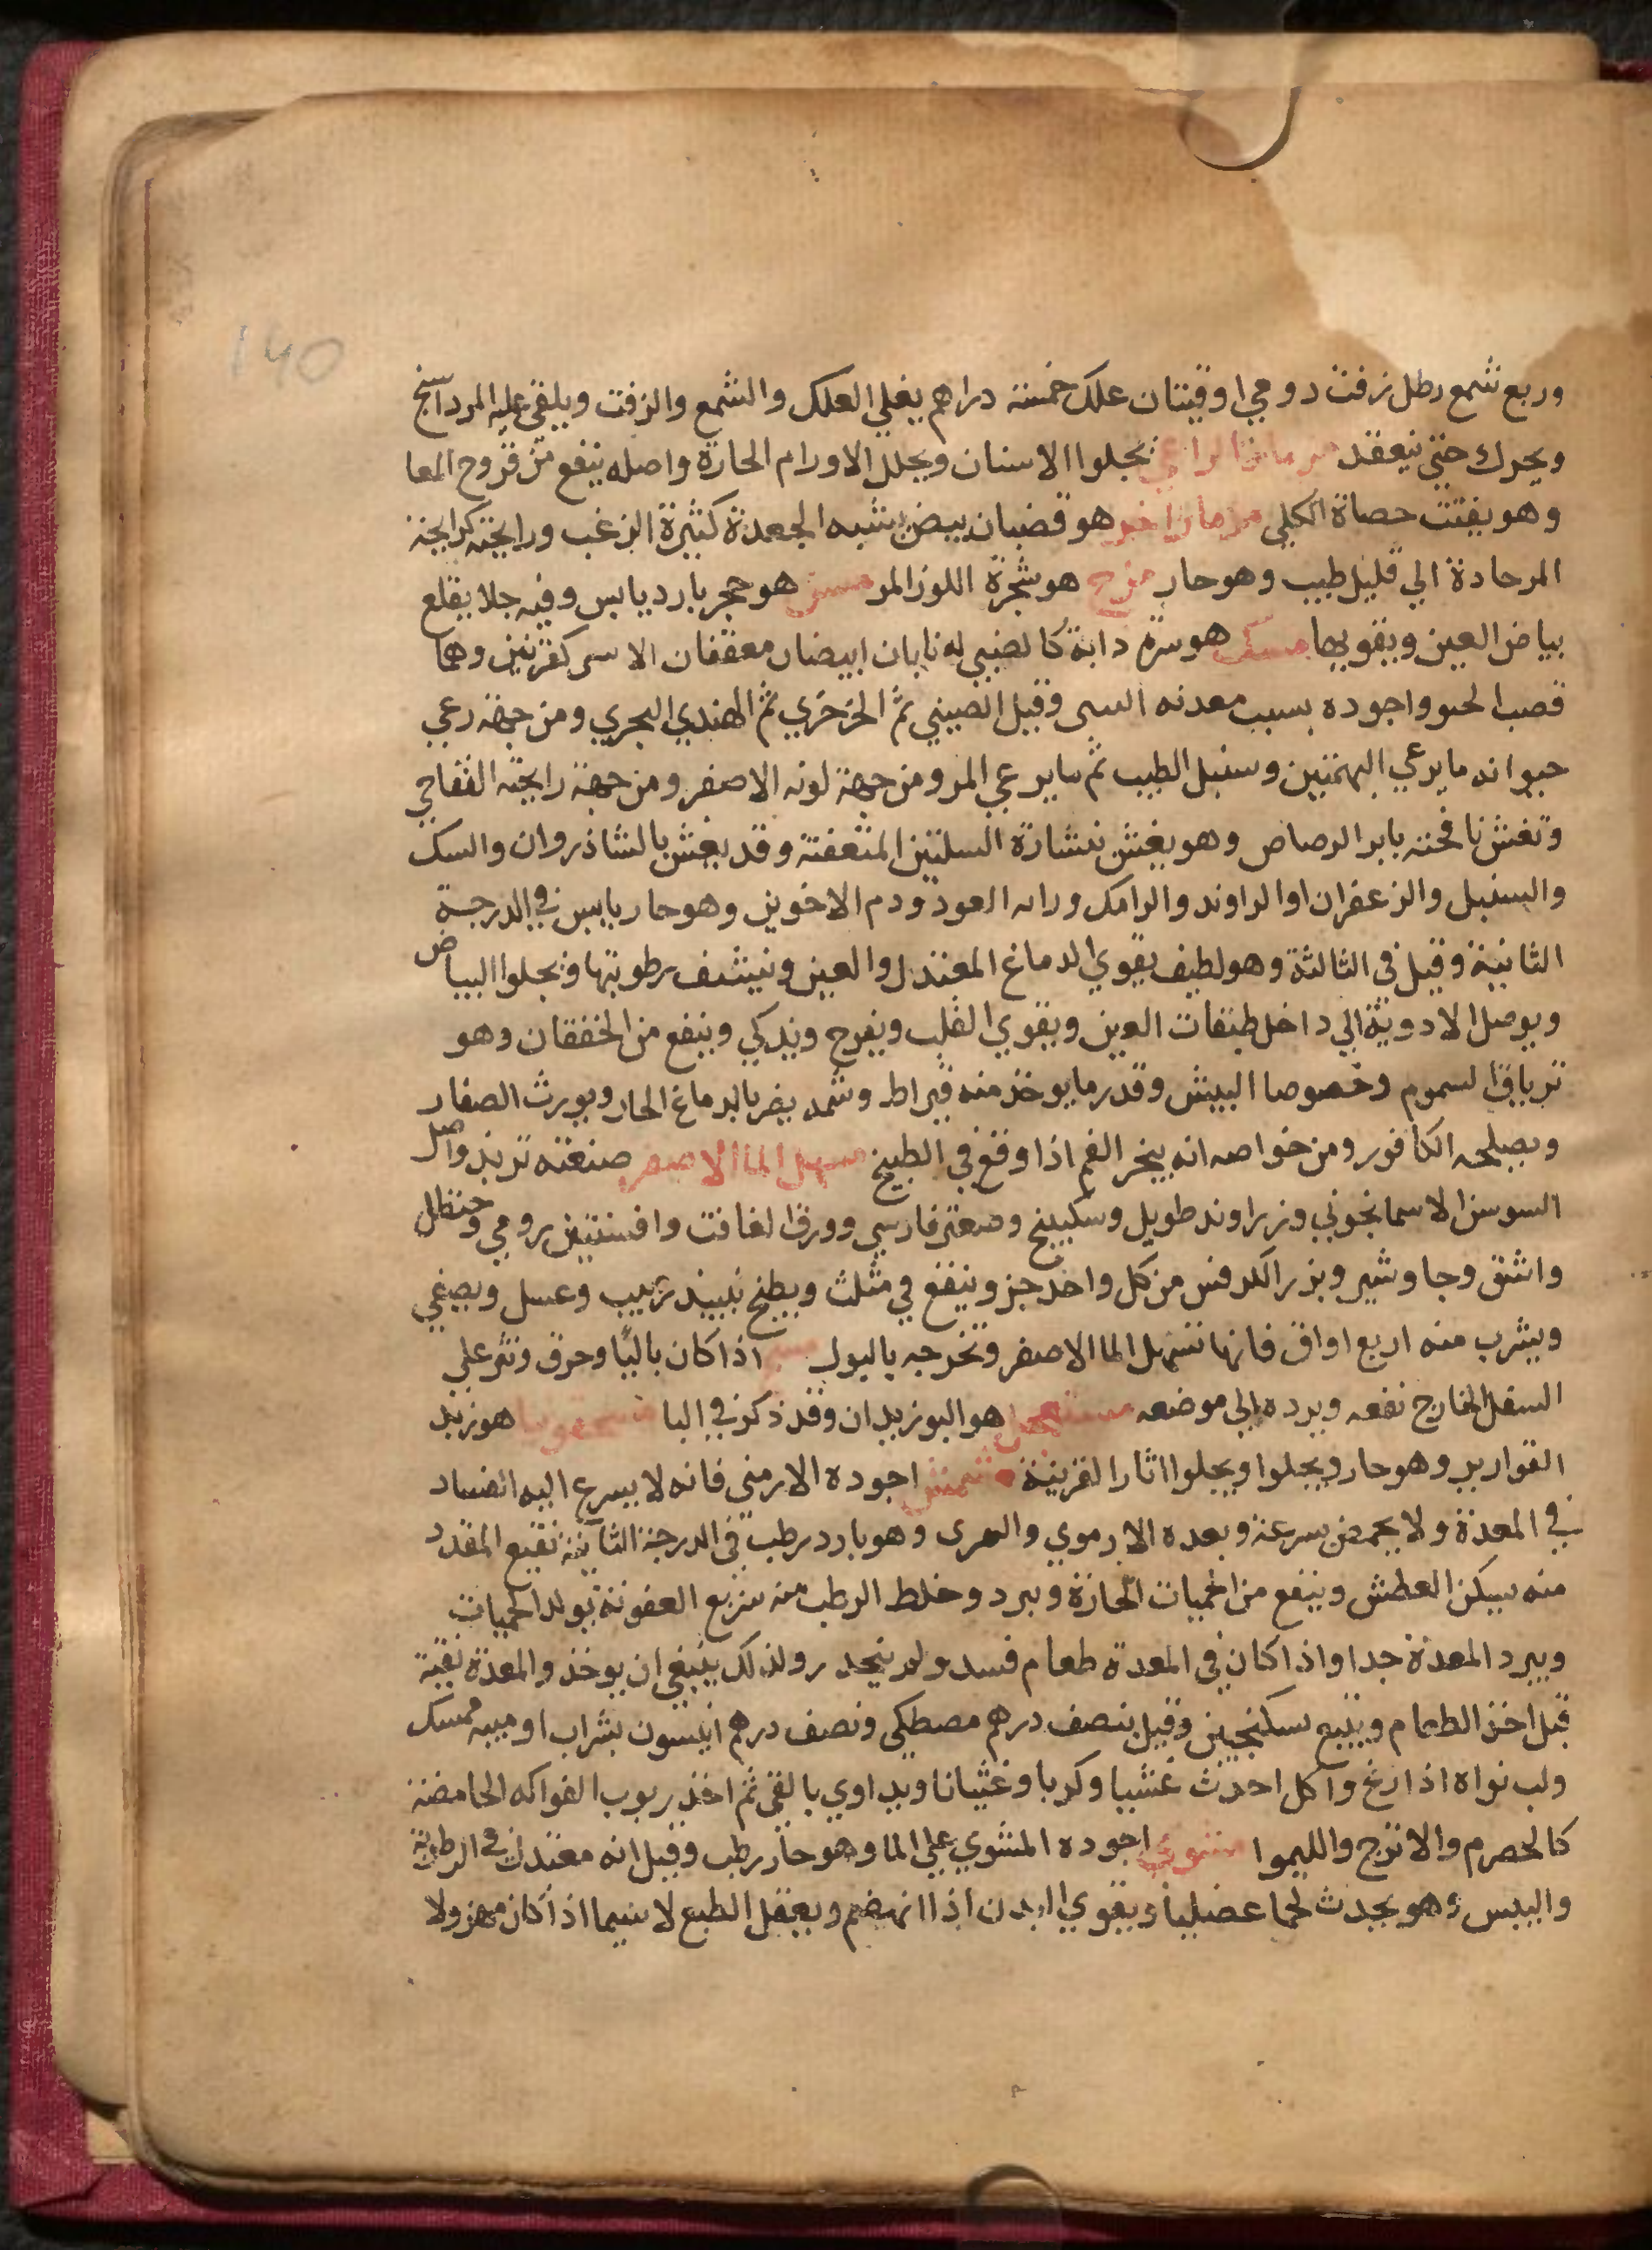 140
وربع شمع رطل زفت رومي اوقيتان علك خمسة دراهم يغلي العلك والشمع والزفت ويلقي عليه المرداسنج
ويحرك حتي ينعقد مزمار الراعي يجلوا الاسنان ويحلل الاورام الحارة واصله ينفع من قروح المعا
وهو يفتت حصاة الكلي مرماخور هو قضبان بيض يشبه الجعدة كثيرة الزغب ورايحته كرايحة
المر حادة الي قليل طيب وهو حار مزج هو شجرة اللوز المر مسن هو حجر بارد يابس وفيه جلا يقلع
بياض العين ويقويها مسك هو سرة دابة كالضبي له نابان ابيضان معقفان الانسي كقرنين وهما
قصب واجوده بسبب معدنه وقيل الصيني ثم الخرخزي ثم الهندي البحري ومن جهة رعي
حيوانه ما يرعي البهمنين وسنبل الطيب ثم ما يرعي المر ومن جهة لونه الاصفر ومن جهة رايحته التفاحي
وتغش نافحته بابر الرصاص وهو يغش بنشارة المتعفتة وقد يغش بالشاذروان والسك
والسنبل والزعفران او الراوند والرامك العود ودم الاخوين وهو حار يابس في الدرجة
الثانية وقيل في الثالثة وهو لطيف يقوي الدماغ المعتدل والعين وينشف رطوبتها ويجلوا البياض
ويوصل الادوية الي داخل طبقات العين ويقوي القلب ويفرح ويذكي وينفع من الخفقان وهو
ترياق السموم وخصوصا البيش وقدر ما يوخذ منه قيراط وشمه يضر بالدماغ الحار ويورث الصفار
ويصلحه الكافور ومن خواصه انه يبخر الفم اذا وقع في الطبيخ مسهل الما الاصفر صنعته تربد واصل
السوسن الاسمانجوني وزراوند طويل وسكبينج وصعتر فارسي وورق الغافت وافسنتين رومي وحنظل
واشق وجاوشير وبزر الكرفس من كل واحد جز وينقع في مثلث ويطبخ بنبيذ زبيب وعسل ويصفي
ويشرب منه اربع اواق فانها تسهل الما الاصفر وتخرجه بالبول اذا كان باليًا وحرق ونثر علي
السفل الخارج نفعه ويرده الي موضعه مستعجل هو البوزيدان وقد ذكر في البا مسحقونيا هو زبد
القوارير وهو حار ويجلوا ويجلوا اثار القرينة مشمش اجوده الارمني فانه لا يسرع اليه الفساد
في المعدة ولا يحمض بسرعة وبعده الارموي وهو بارد رطب في الدرجة الثانية نقيع المقدد
منه يسكن العطش وينفع من الحميات الحارة ويبرد وخلط الرطب منه سريع العفونة يولد الحميات
ويبرد المعدة جدا واذا كان في المعدة طعام فسد ولم ينحدر ولذلك ينبغي ان يوخذ والمعدة نقية
قبل اخذ الطعام ويتبع بسكنجبين وقيل بنصف درهم مصطكي ونصف درهم انيسون بشراب او ميبه ممسك
ولب نواه اذا زنخ واكل احدث غشيا وكربا وغثيانا ويداوي بالقي ثم اخذ ربوب الفواكه الحامضة
كالحصرم والاترج والليموا مشوي اجوده المشوي علي الما وهو حار رطب وقيل انه معتدل في الرطوبة
واليبس وهو يحدث لحما عضليا ويقوي البدن اذا انهضم ويعقل الطبع لا سيما اذا كان مهزولا